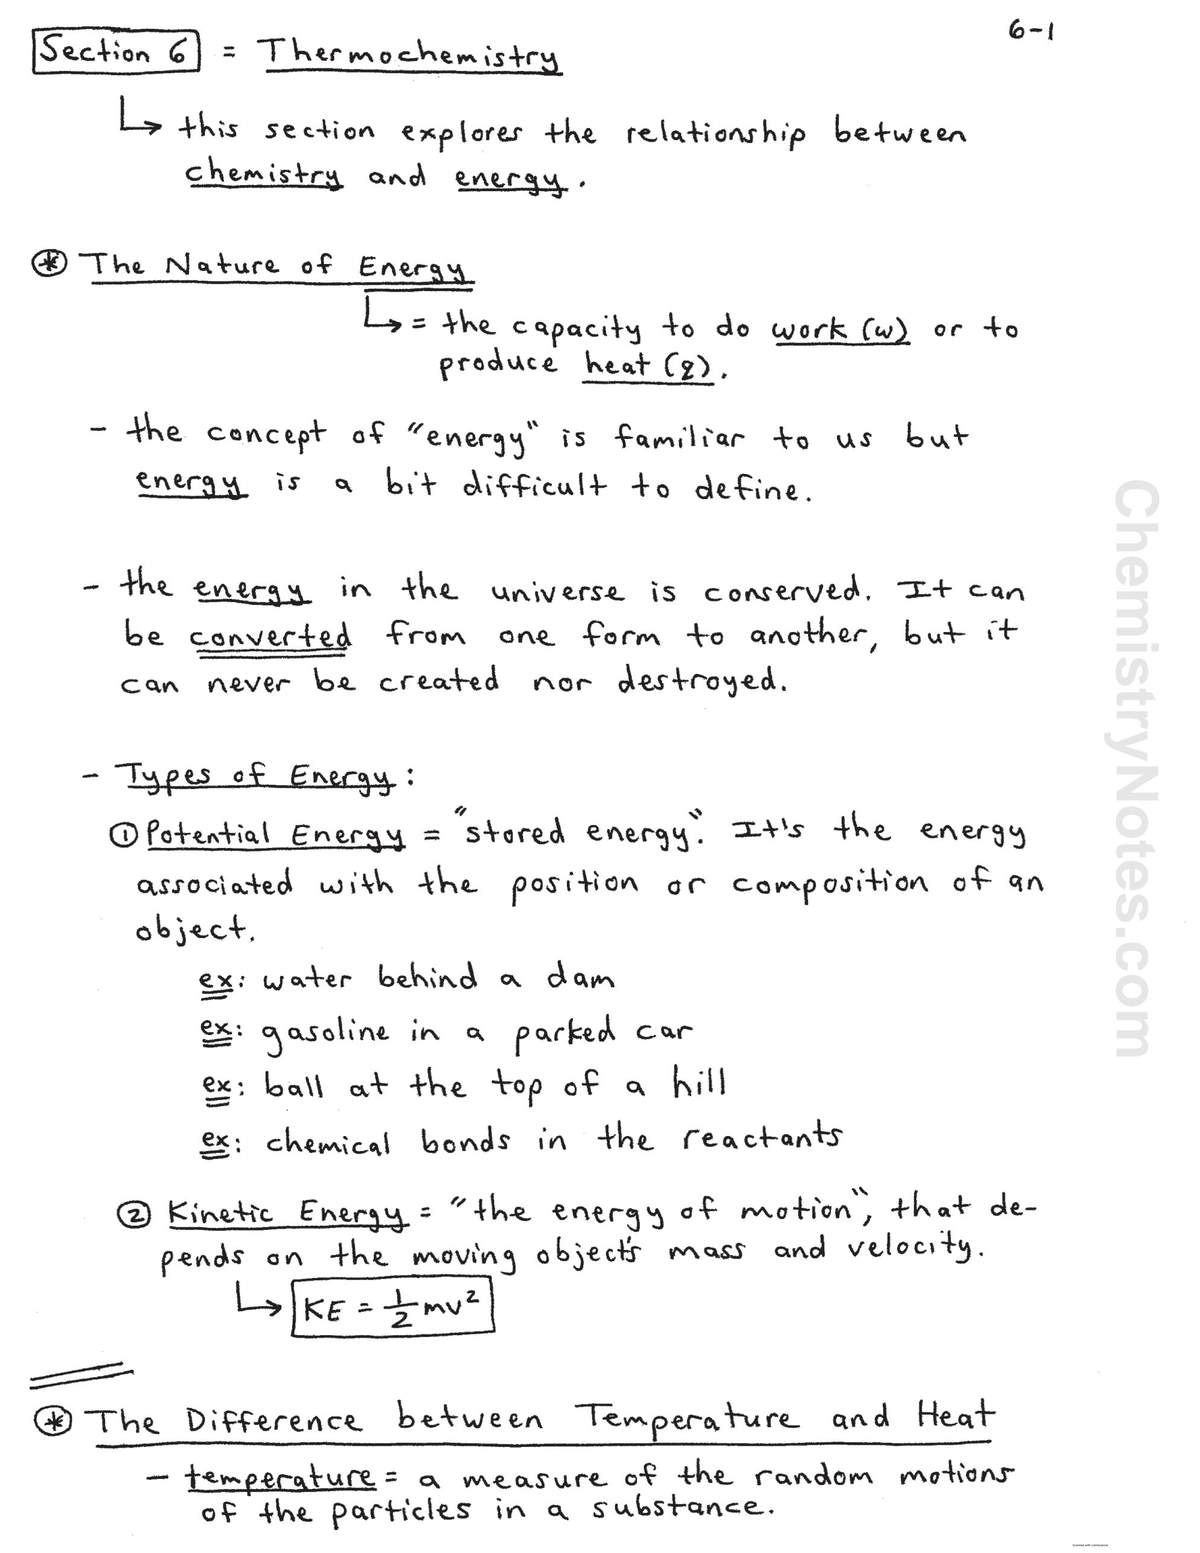 6-1
Section 6 = Thermochemistry
↳ this section explores the relationship between
chemistry and energy.
⊛ The Nature of Energy
↳ = the capacity to do work (w) or to
produce heat (q).
- the concept of "energy" is familiar to us but
energy is a bit difficult to define.
- the energy in the universe is conserved. It can
be converted from one form to another, but it
can never be created nor destroyed.
- Types of Energy:
① Potential Energy = "stored energy". It's the energy
associated with the position or composition of an
object.
ex: water behind a dam
ex: gasoline in a parked car
ex: ball at the top of a hill
ex: chemical bonds in the reactants
② Kinetic Energy = "the energy of motion", that de-
pends on the moving object's mass and velocity.
↳ KE = 1/2 mv²
⊛ The Difference between Temperature and Heat
- temperature = a measure of the random motions
of the particles in a substance.
ChemistryNotes.com